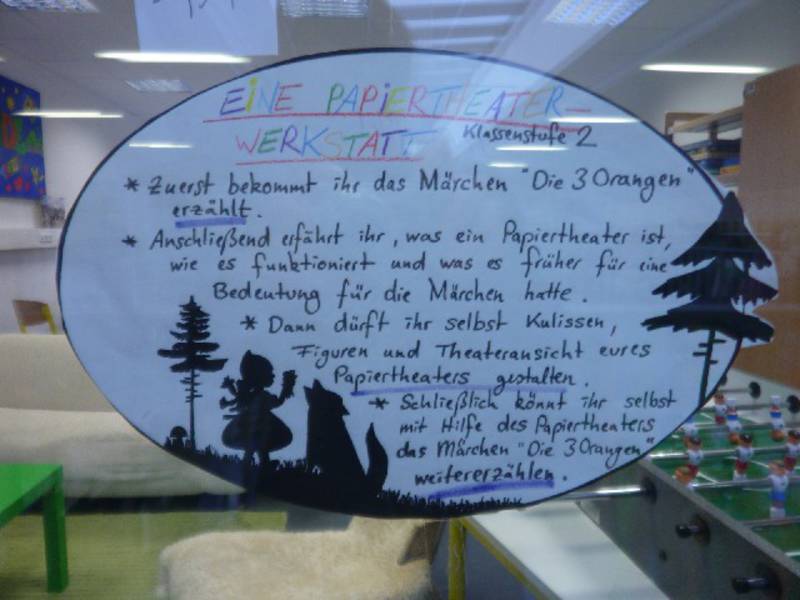 EINE PAPIERTHEATER-
WERKSTATT Klassenstufe 2
* Zuerst bekommt ihr das Märchen "Die 3 Orangen"
erzählt.
* Anschließend erfährt ihr, was ein Papiertheater ist,
wie es funktioniert und was es früher für eine
Bedeutung für die Märchen hatte.
* Dann dürft ihr selbst Kulissen,
Figuren und Theateransicht eures
Papiertheaters gestalten.
* Schließlich könnt ihr selbst
mit Hilfe des Papiertheaters
das Märchen "Die 3 Orangen"
weitererzählen.